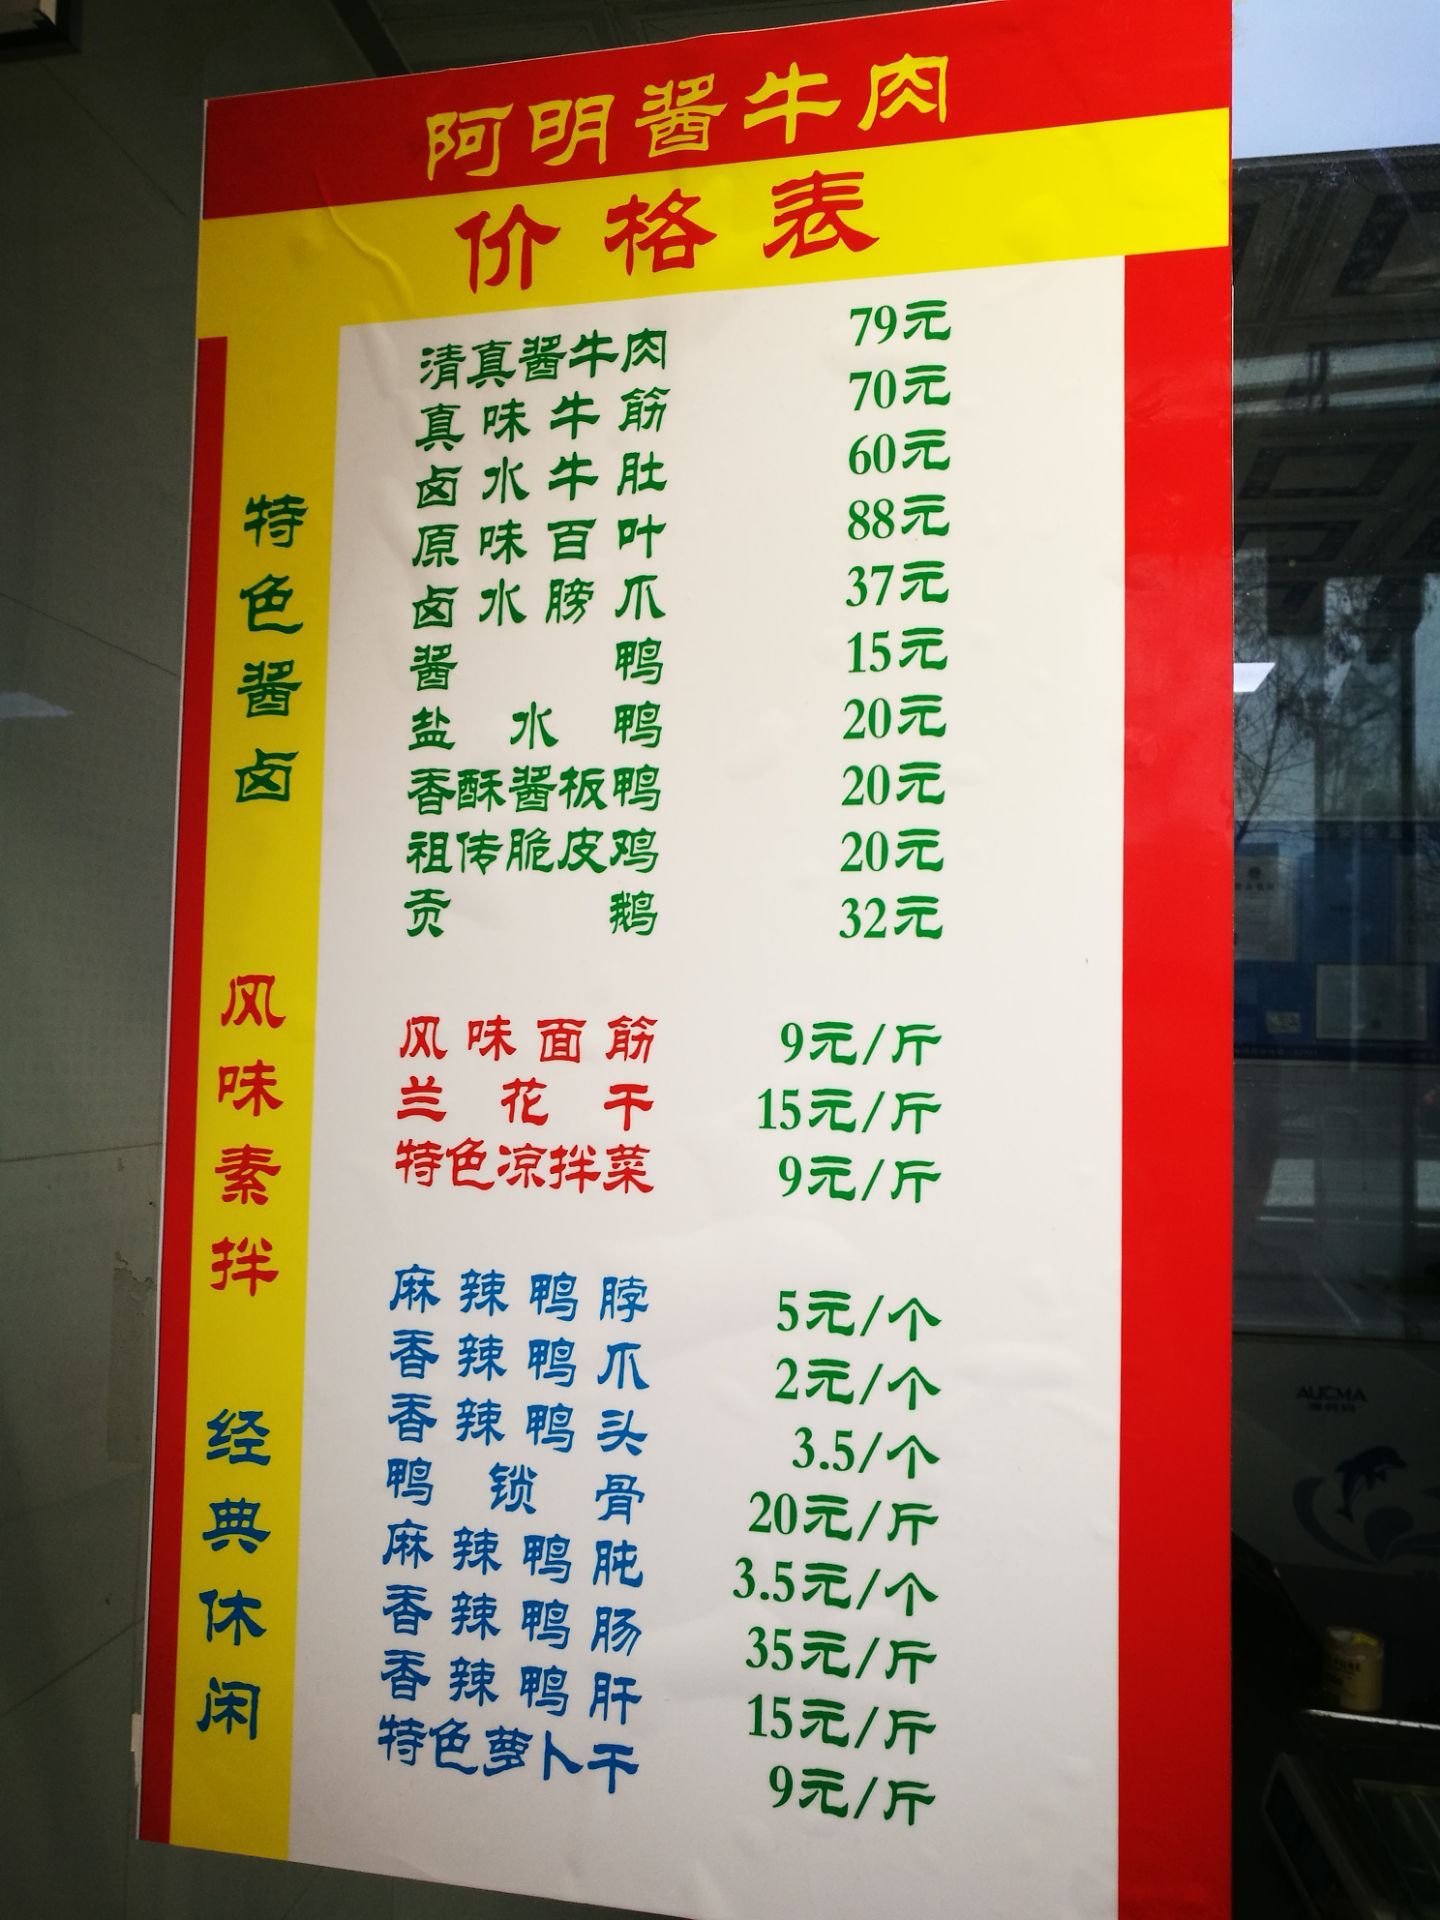 阿明酱牛肉
价格表
特色酱卤
清真酱牛肉 79元
真味牛筋 70元
卤水牛肚 60元
原味百叶 88元
卤水膀爪 37元
酱鸭 15元
盐水鸭 20元
香酥酱板鸭 20元
祖传脆皮鸡 20元
贡鹅 32元
风味素拌
风味面筋 9元/斤
兰花干 15元/斤
特色凉拌菜 9元/斤
经典休闲
麻辣鸭脖 5元/个
香辣鸭爪 2元/个
香辣鸭头 3.5/个
鸭锁骨 20元/斤
麻辣鸭肫 3.5元/个
香辣鸭肠 35元/斤
香辣鸭肝 15元/斤
特色萝卜干 9元/斤
AUCMA